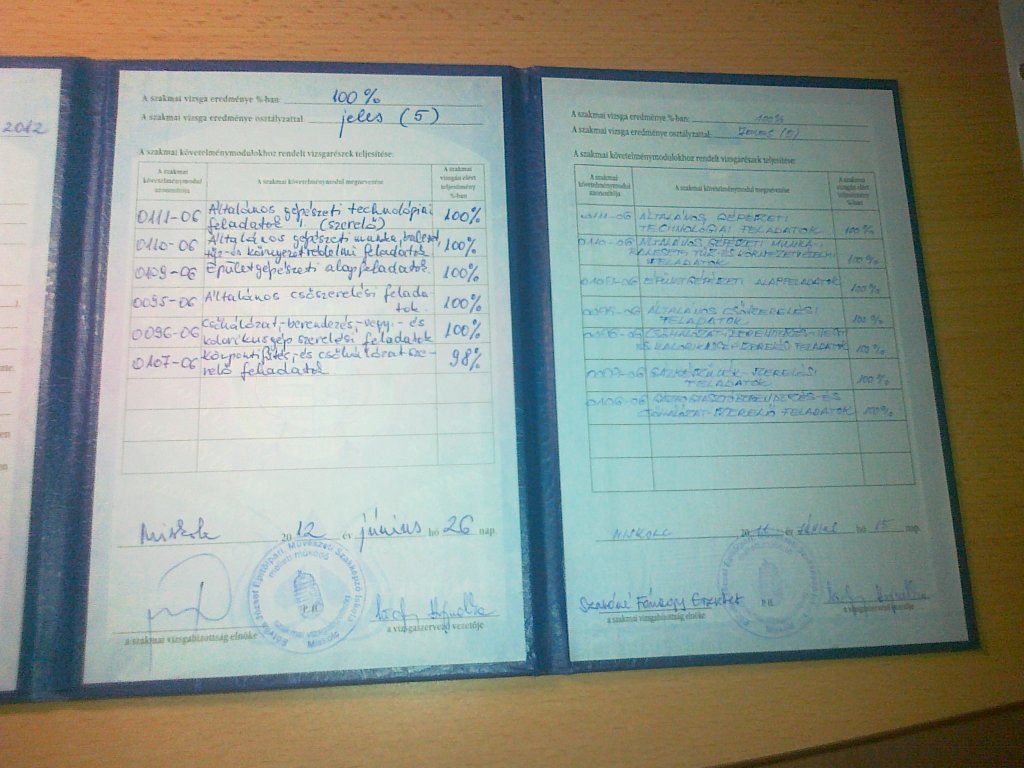 2012
A szakmai vizsga eredménye %-ban: 100%
A szakmai vizsga eredménye osztályzattal: jeles (5)
A szakmai követelménymodulokhoz rendelt vizsgarészek teljesítése:
A szakmai követelménymodul azonosítója
A szakmai követelménymodul megnevezése
A szakmai vizsgán elért teljesítmény %-ban
0111-06 Általános gépészeti technológiai 100%
feladatok I. (szerelő)
0110-06 Általános gépészeti munka, baleset, 100%
tűz- és környezetvédelmi feladatok
0109-06 Épületgépészeti alapfeladatok 100%
0095-06 Általános csőszerelési felada 100%
tok.
0096-06 Csőhálózat,-berendezés,-vegy.- és 100%
kalorikusgép szerelési feladatok
0107-06 Központifűtés,-és csőhálózatsze- 98%
relő feladatok
Miskolc 2012 év június hó 26 nap.
Építőipari, Művészeti Szakképző Iskola
mellett működő
szakmai vizsgabizottság
Miskolc
P.H.
a szakmai vizsgabizottság elnöke
a vizsgaszervező vezetője
A szakmai vizsga eredménye %-ban: 100%
A szakmai vizsga eredménye osztályzattal: (5)
A szakmai követelménymodulokhoz rendelt vizsgarészek teljesítése:
A szakmai követelménymodul azonosítója
A szakmai követelménymodul megnevezése
A szakmai vizsgán elért teljesítmény %-ban
0111-06 ÁLTALÁNOS GÉPÉSZETI 100%
TECHNOLÓGIAI FELADATOK
0110-06 ÁLTALÁNOS GÉPÉSZETI MUNKA-, 100%
BALESETI, TŰZ- ÉS KÖRNYEZETVÉDELMI
FELADATOK
0109-06 ÉPÜLETGÉPÉSZETI ALAPFELADATOK 100%
0095-06 ÁLTALÁNOS CSŐSZERELÉSI 100%
FELADATOK
0096-06 CSŐHÁLÓZAT-, BERENDEZÉS-, VEGY- 100%
ÉS KALORIKUSGÉP SZERELŐ FELADATOK
GÁZKÉSZÜLÉK-SZERELÉSI 100%
FELADATOK
0106-06 ÉS 100%
CSŐHÁLÓZAT-SZERELŐ FELADATOK
MISKOLC 20 év hó 15 nap.
P.H.
a szakmai vizsgabizottság elnöke
a vizsgaszervező vezetője